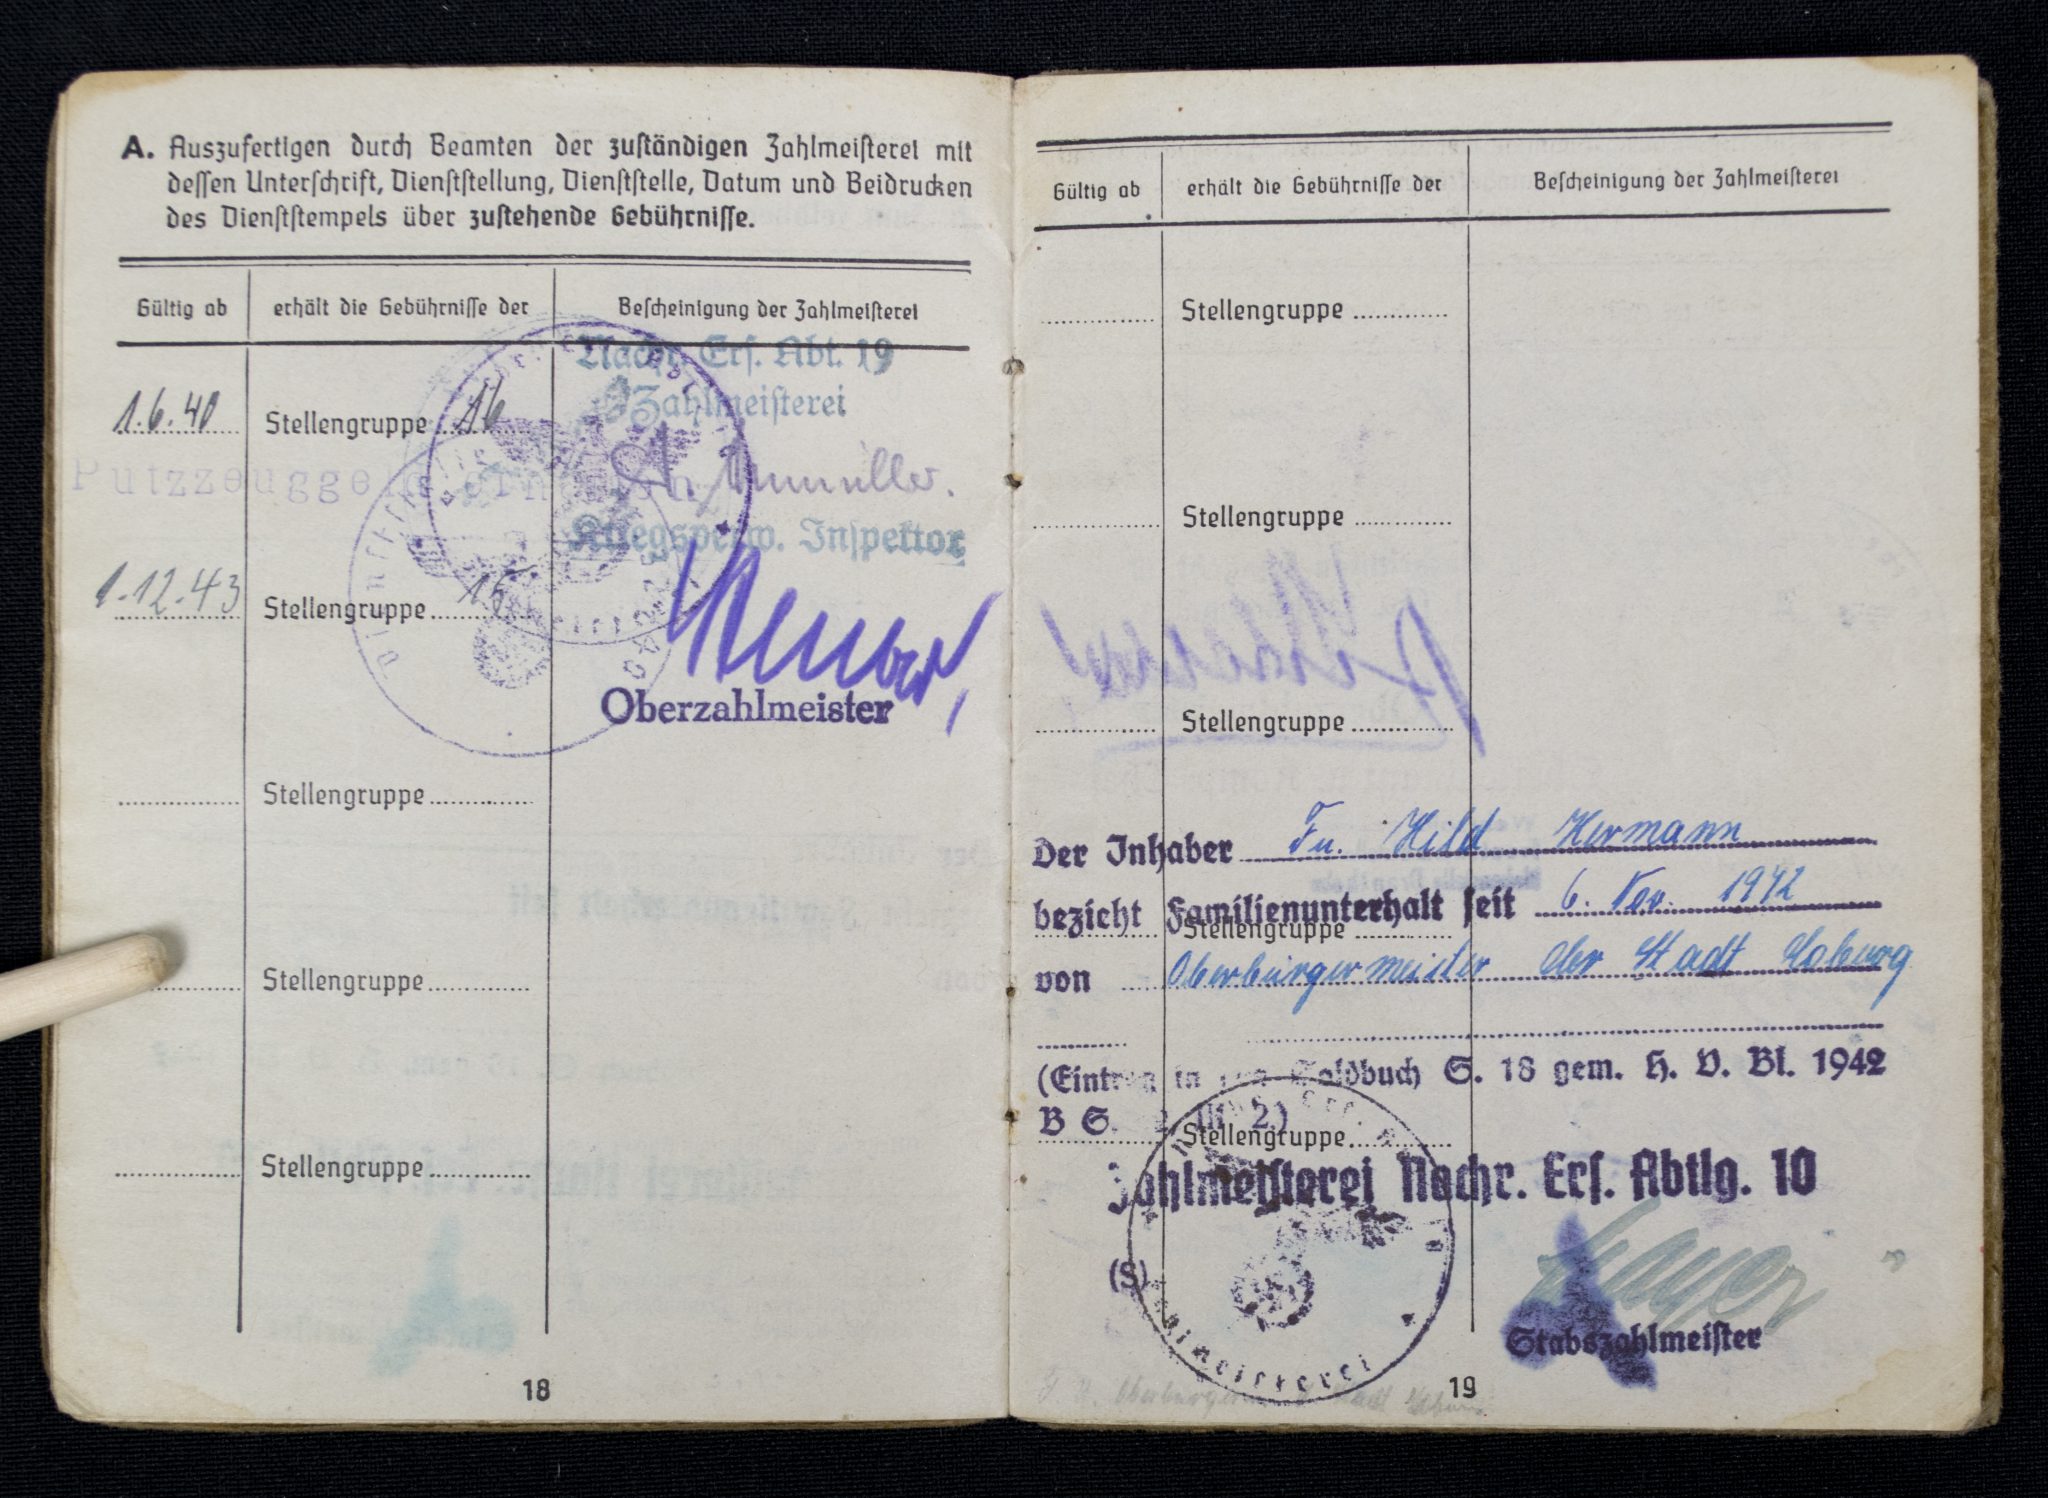 A. Auszufertigen durch Beamten der zuständigen Zahlmeisterei mit
dessen Unterschrift, Dienststellung, Dienststelle, Datum und Beidrucken
des Dienststempels über zustehende Gebührnisse.
Gültig ab erhält die Gebührnisse der Bescheinigung der Zahlmeisterei
Nachr. Ers. Abt. 19
Zahlmeisterei
1.6.40 Stellengruppe 16
Putzzeuggeld
Kriegsverw. Inspektor
1.12.43 Stellengruppe 15
Oberzahlmeister
Stellengruppe
Stellengruppe
Stellengruppe
18
Gültig ab erhält die Gebührnisse der Bescheinigung der Zahlmeisterei
Stellengruppe
Stellengruppe
Stellengruppe
Der Inhaber Fu. Hild Hermann
bezieht Familienunterhalt seit 6. Nov. 1942
Stellengruppe
von Oberbürgermeister der Stadt Coburg
(Eintrag in Soldbuch S. 18 gem. H. V. Bl. 1942
B S. 2)
Stellengruppe
Zahlmeisterei Nachr. Ers. Abtlg. 10
(S)
Zahlmeisterei
Mayer
Stabszahlmeister
19